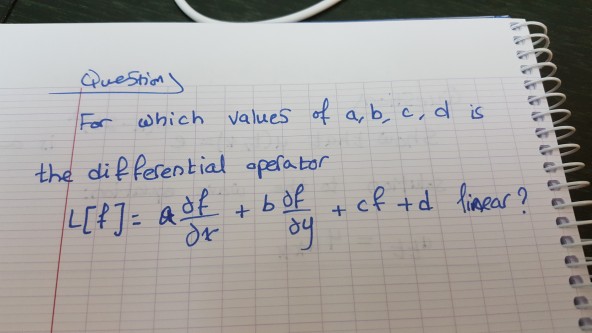 Question
For which values of a, b, c, d is
the differential operator
L[f] = a ∂f/∂x + b ∂f/∂y + cf + d linear?